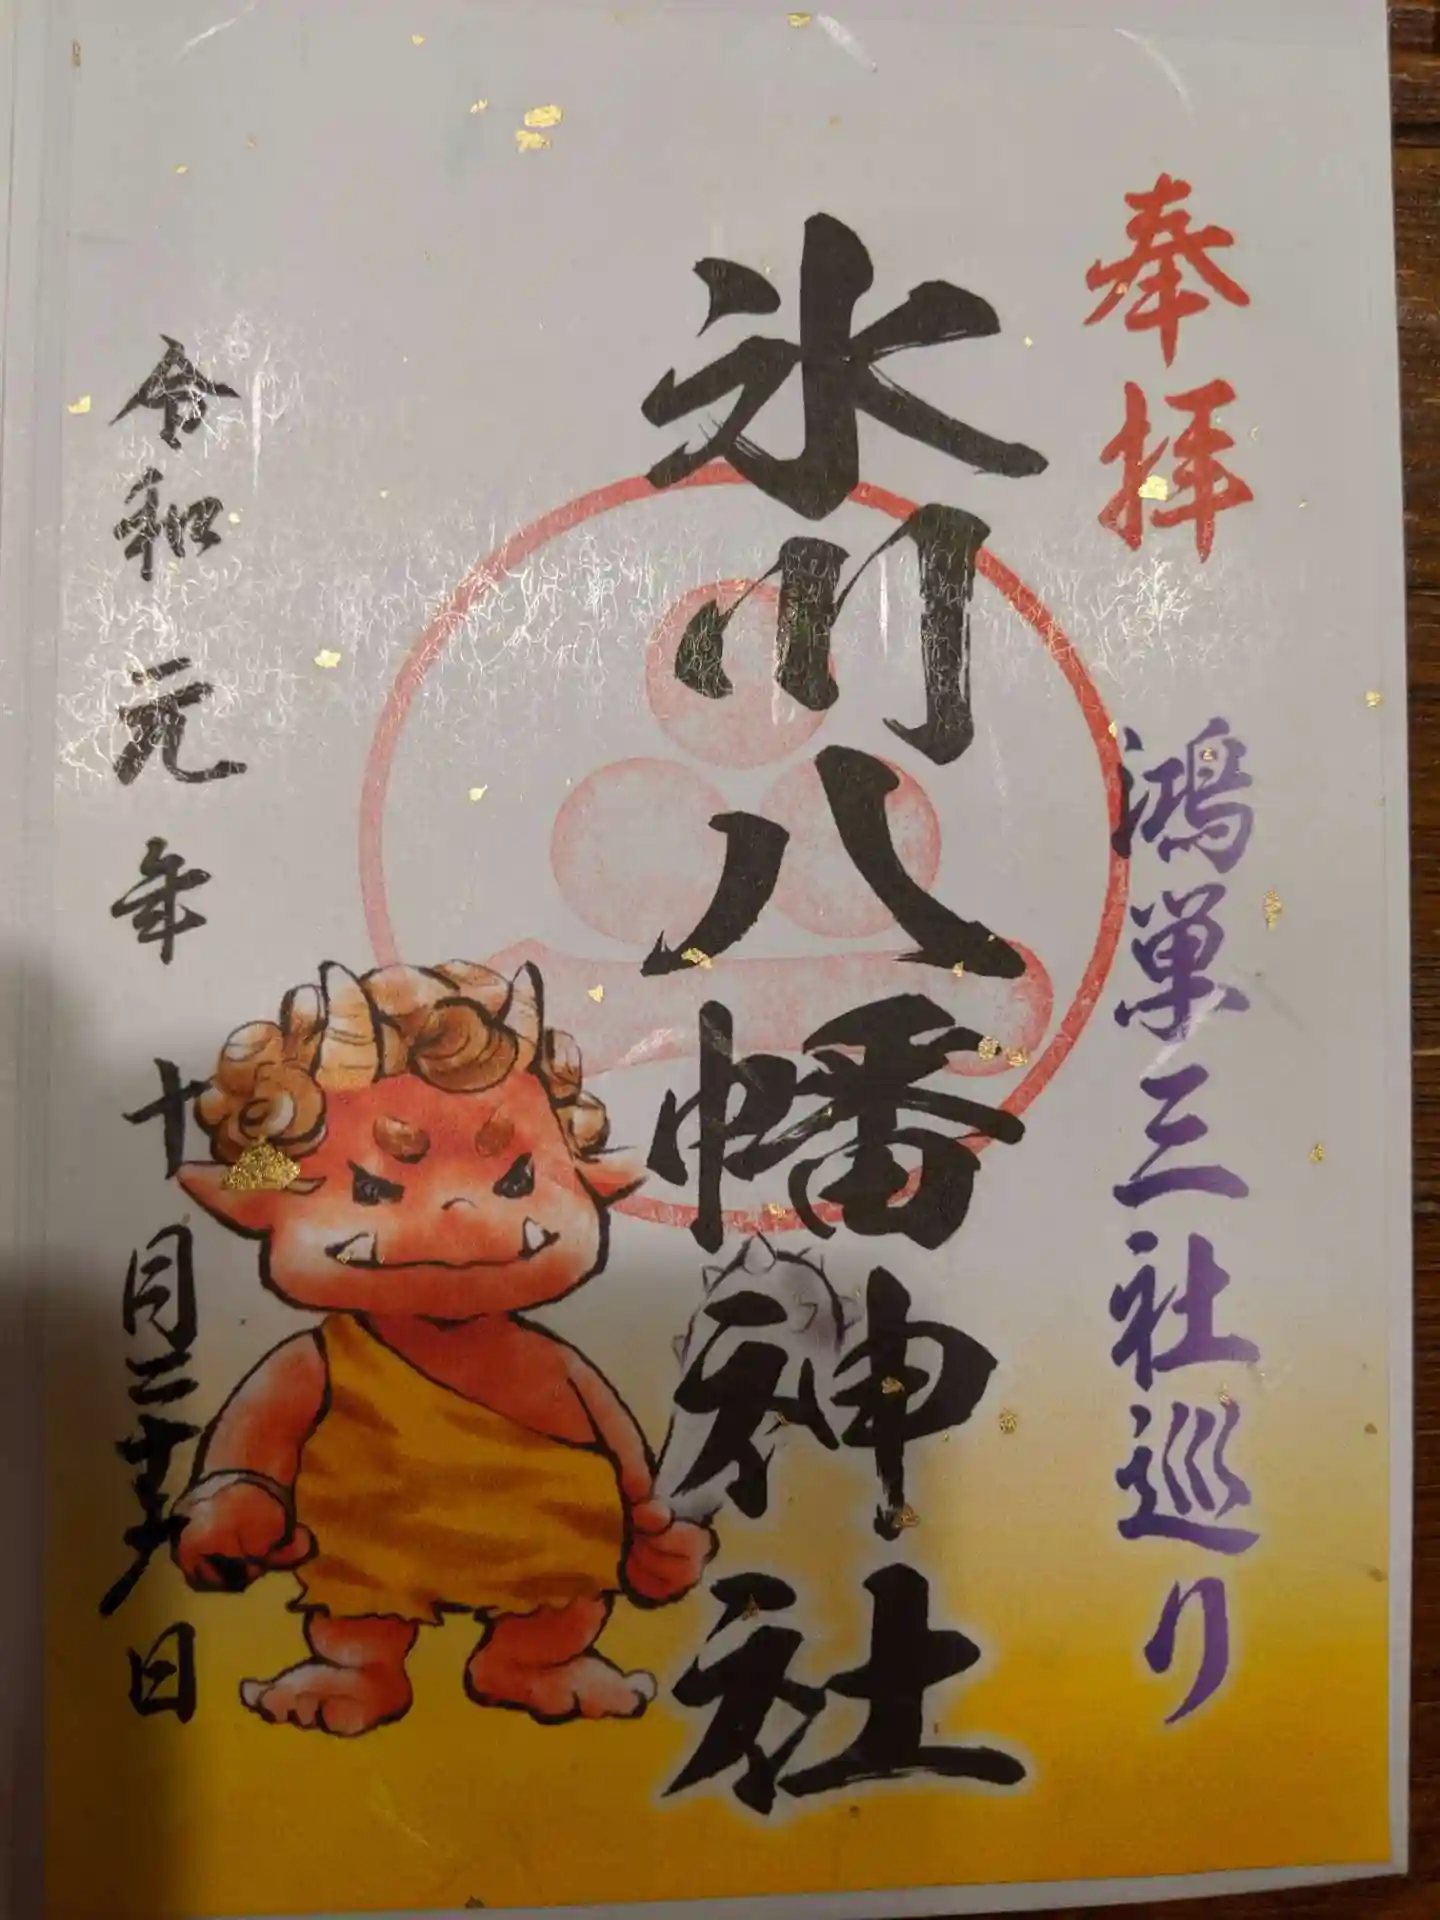 奉拝
鴻巣三社巡り
氷川八幡神社
令和元年十月二十九日